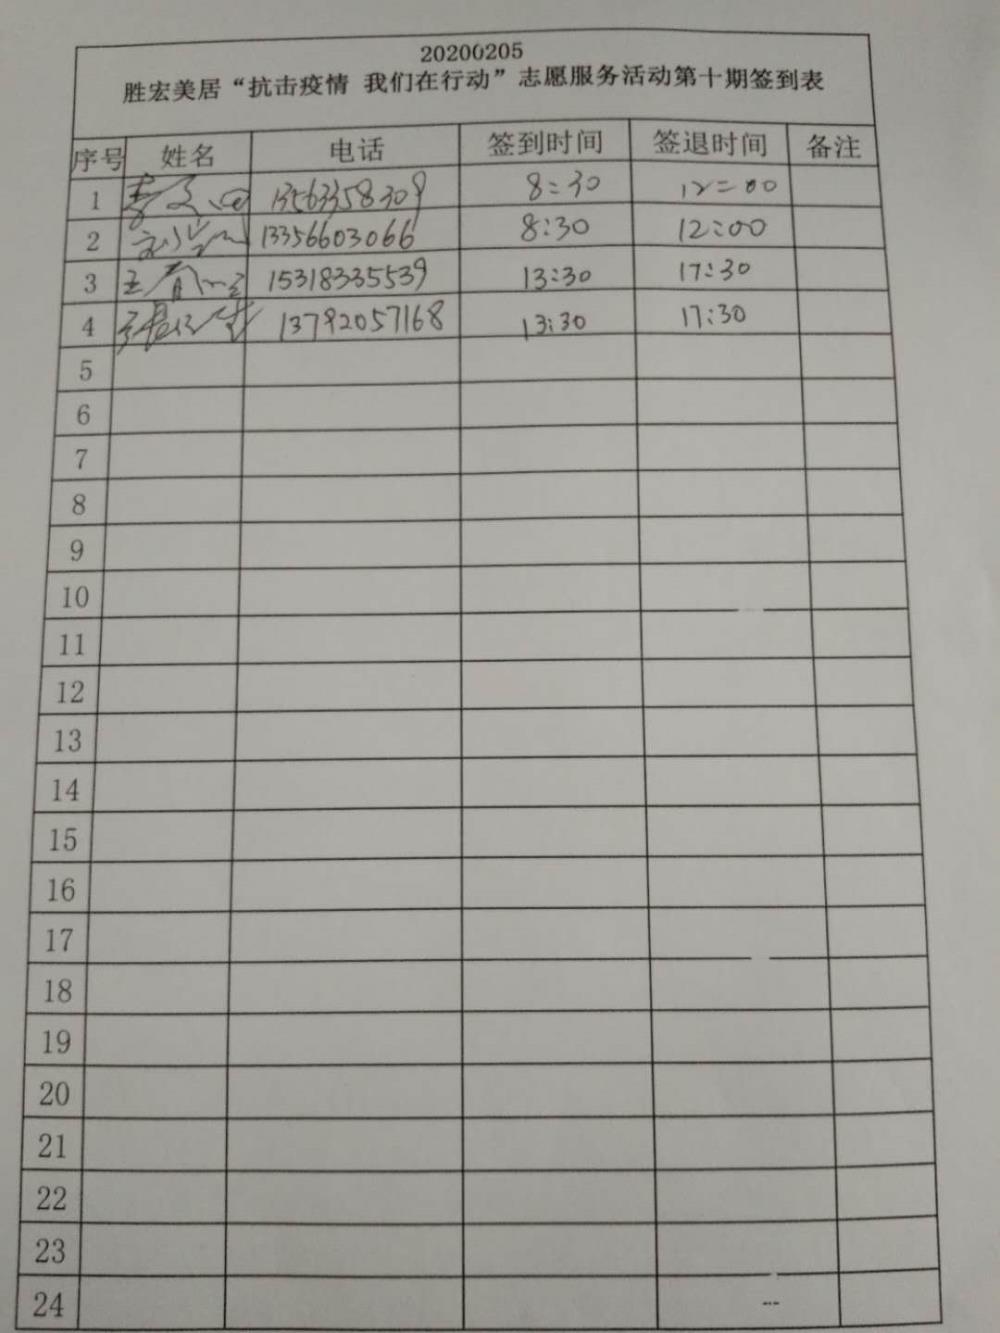 20200205
胜宏美居“抗击疫情 我们在行动”志愿服务活动第十期签到表
序号 姓名 电话 签到时间 签退时间 备注
1 13563358309 8:30 12:00
2 13356603066 8:30 12:00
3 王 15318335539 13:30 17:30
4 张 13792057168 13:30 17:30
5
6
7
8
9
10
11
12
13
14
15
16
17
18
19
20
21
22
23
24